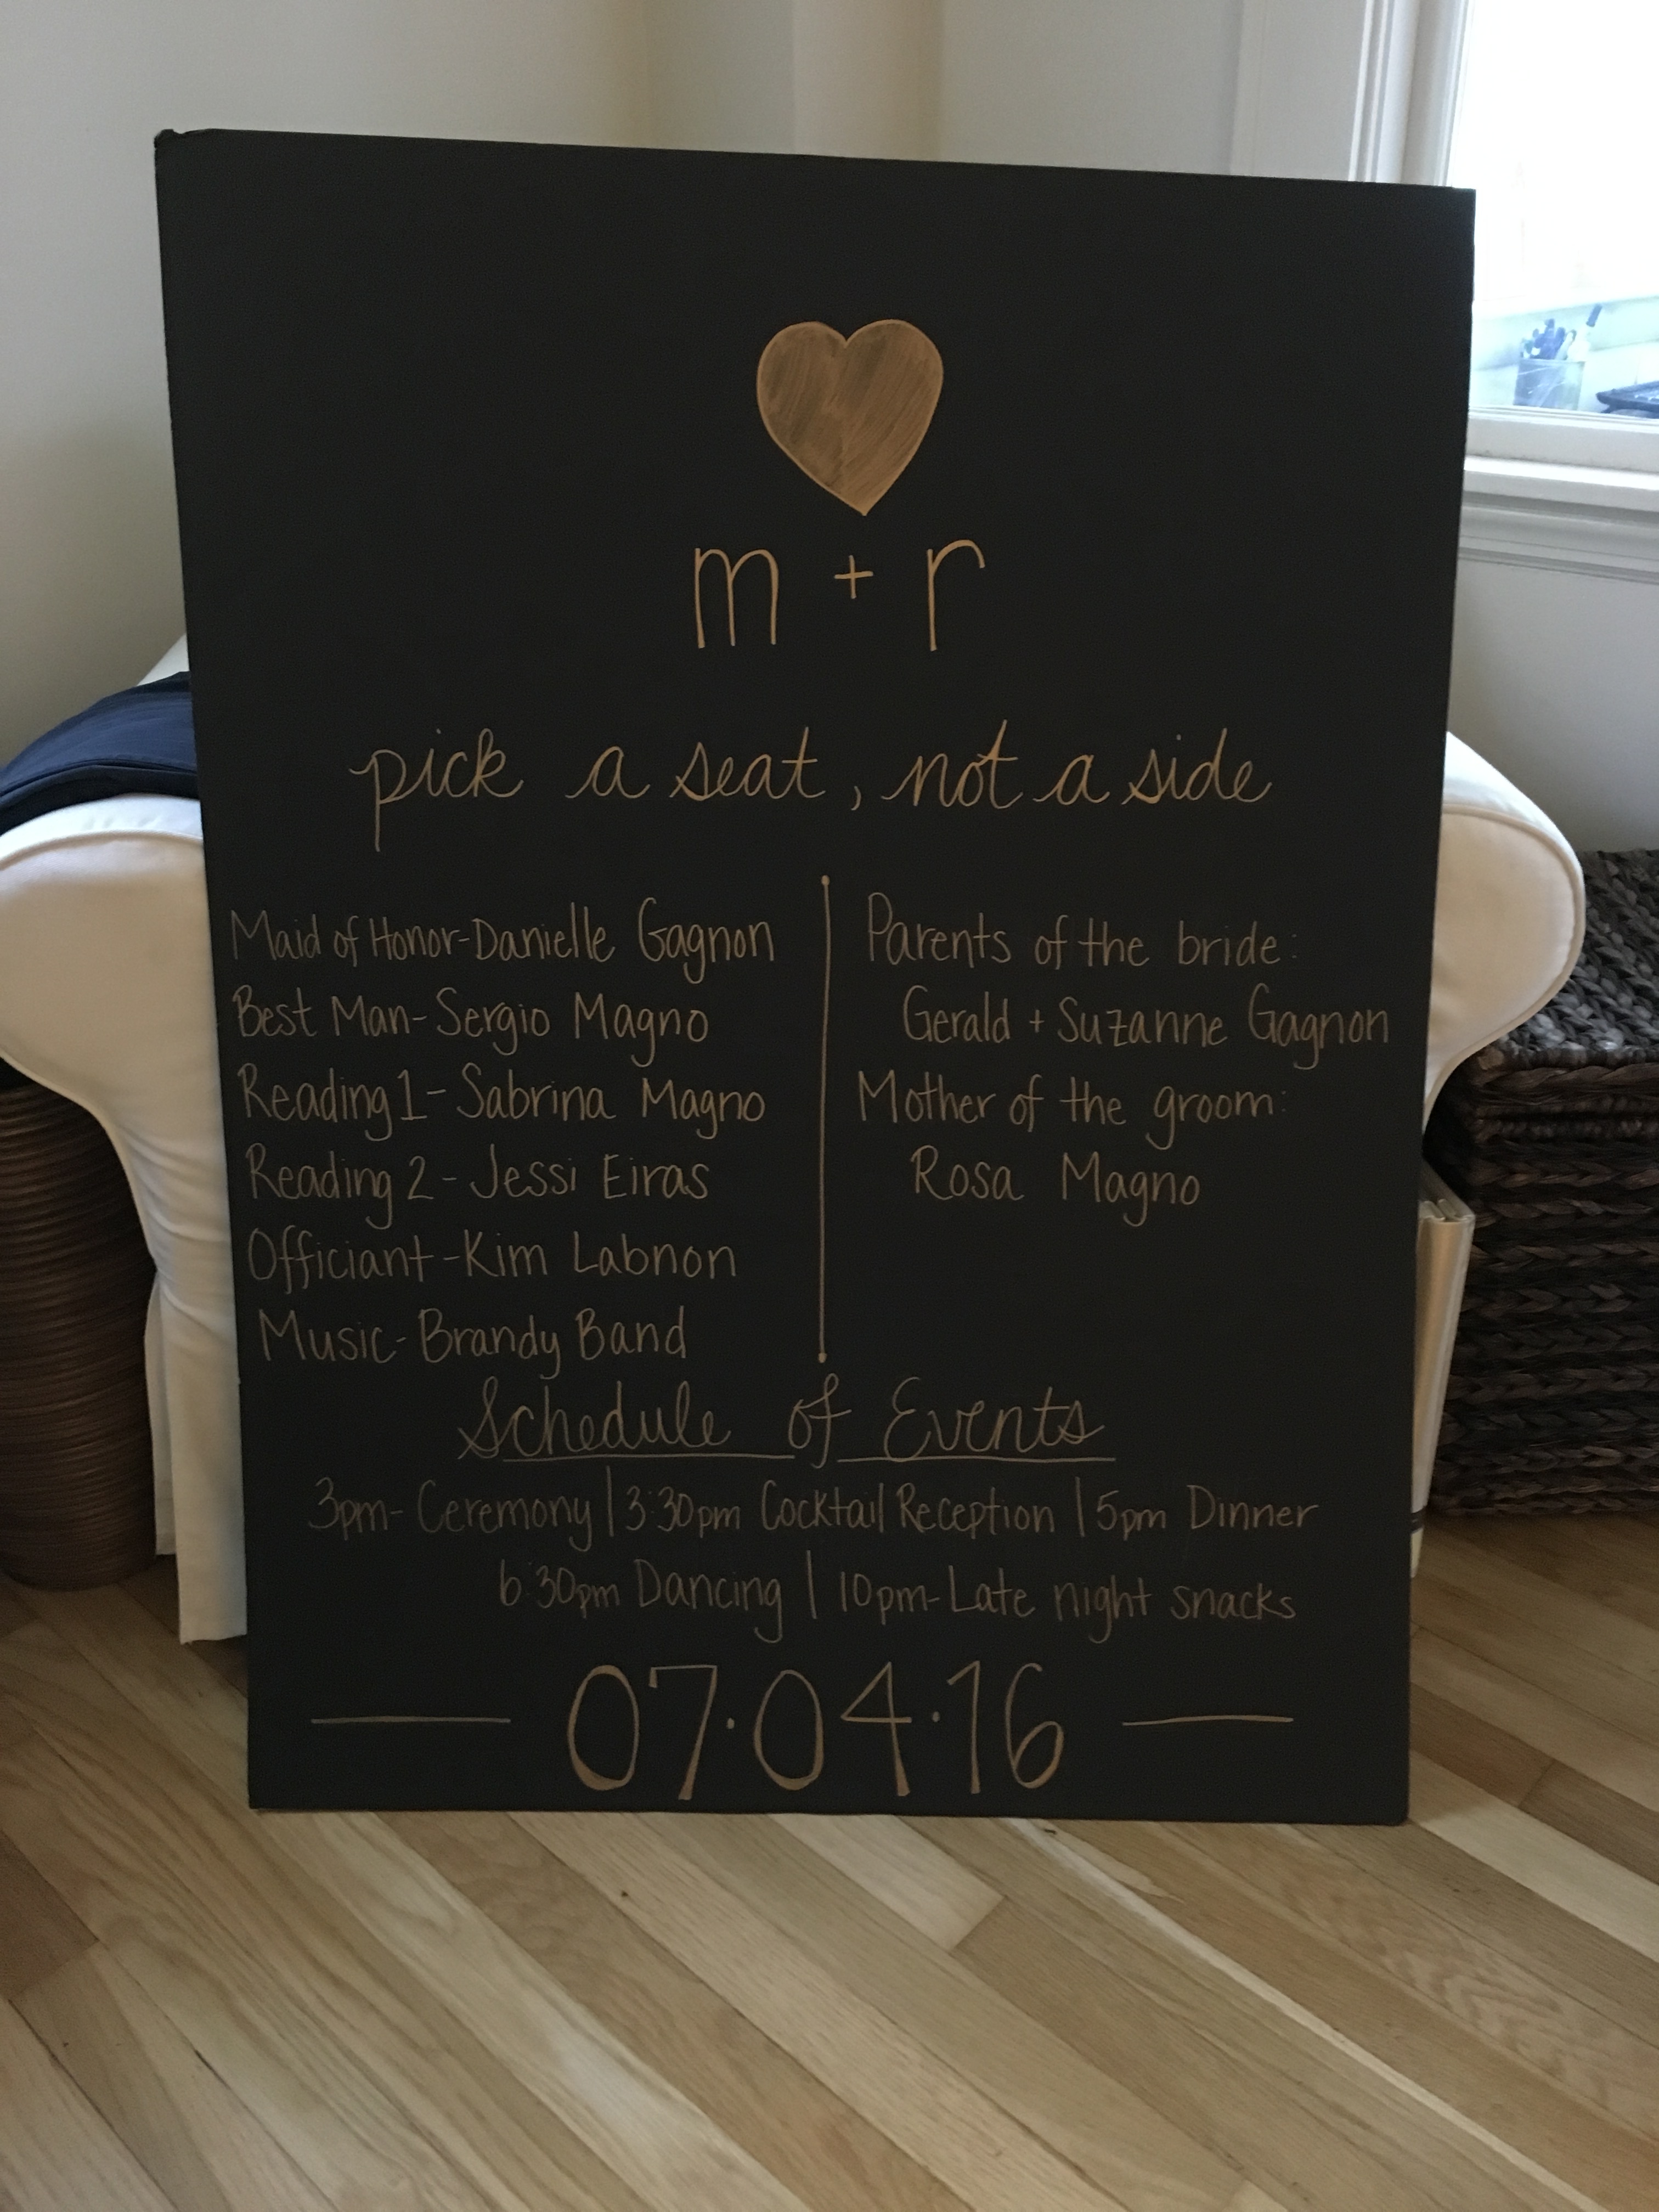 m + r
pick a seat, not a side
Maid of Honor-Danielle Gagnon
Best Man-Sergio Magno
Reading 1-Sabrina Magno
Reading 2-Jessi Eiras
Officiant-Kim Labnon
Music-Brandy Band
Parents of the bride:
Gerald + Suzanne Gagnon
Mother of the groom:
Rosa Magno
Schedule of Events
3pm-Ceremony | 3:30pm Cocktail Reception | 5pm Dinner
6:30pm Dancing | 10pm-Late night snacks
07·04·16